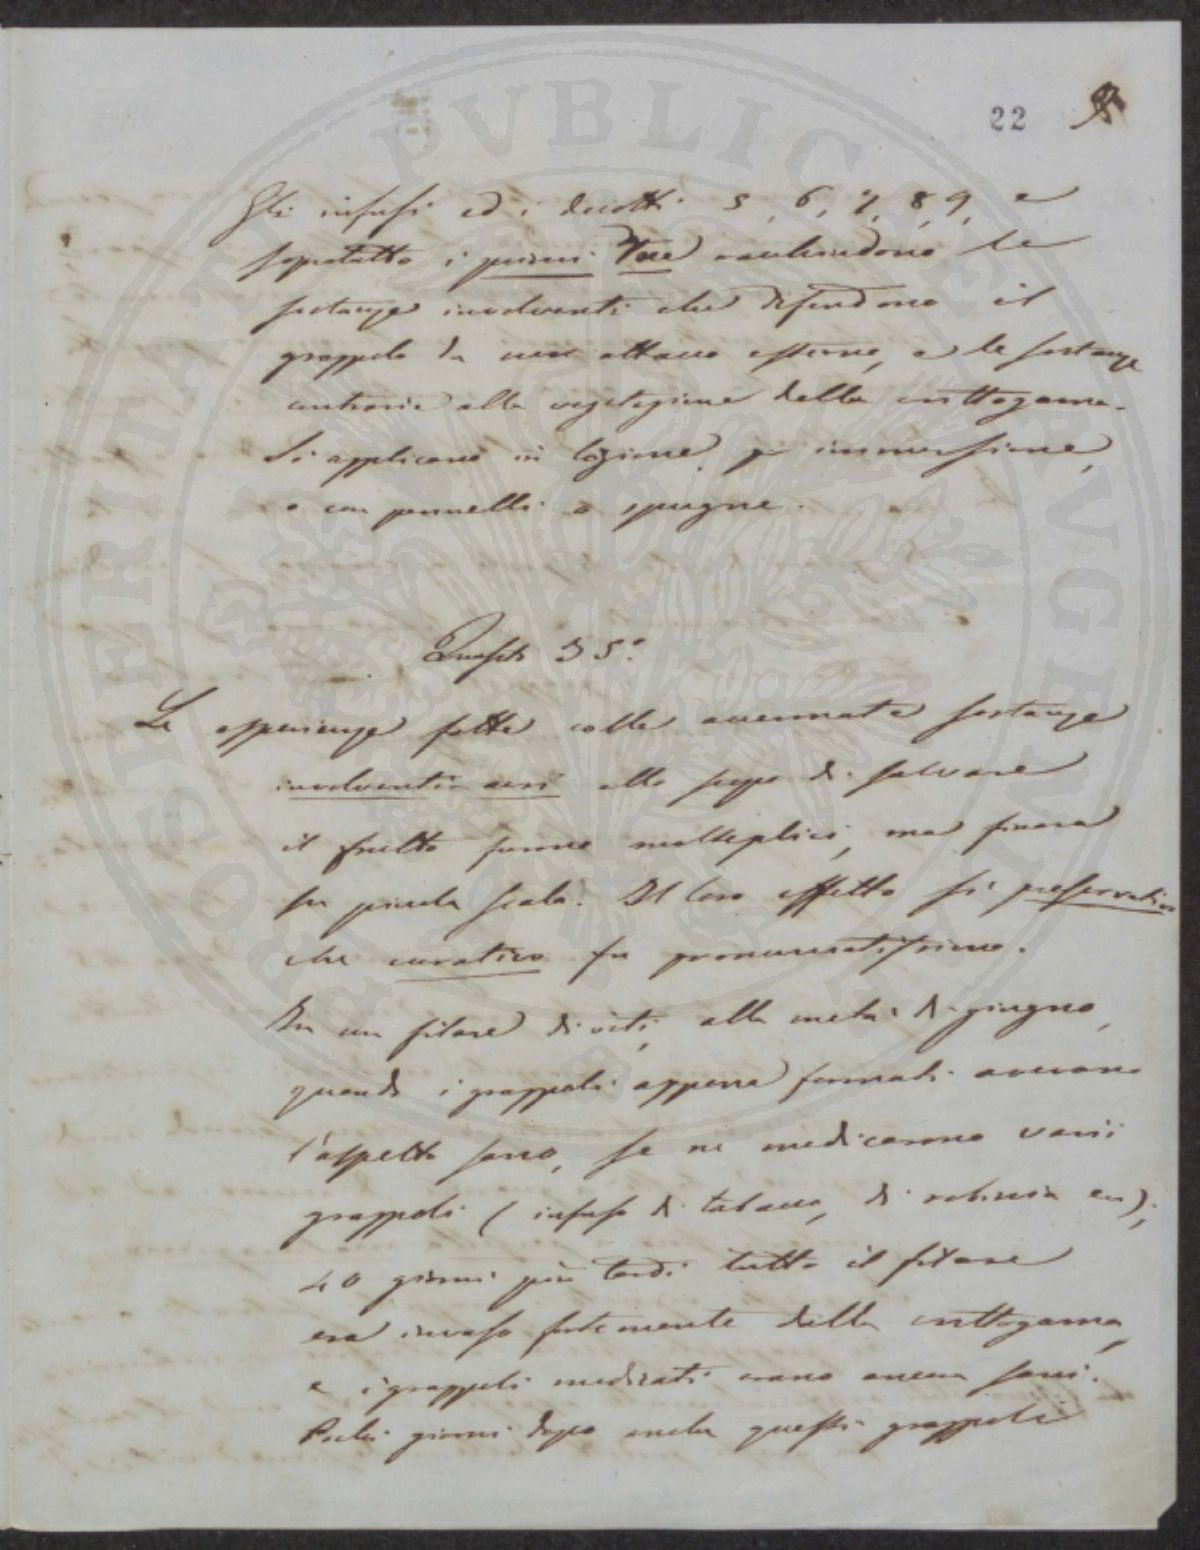 22
Gli infusi ed i decotti 5, 6, 7, 8, 9, e
sopratutto i primi tre racchiudono le
sostanze involventi che difendono il
grappolo da ogni attacco esterno, e le sostanze
contrarie alla vegetazione della crittogama.
Si applicano in lozione, per immersione,
o con pennelli o spugne.
Quesito 35.°
Le esperienze fatte colle accennate sostanze
involventi allo scopo di salvare
il frutto furono molteplici, ma finora
su piccola scala. Il loro effetto sì preservativo
che curativo fu pronunciatissimo.
In un filare di viti, alla metà di giugno,
quando i grappoli appena formati avevano
l'aspetto sano, se ne medicarono varii
grappoli (infuso di tabacco, di robinia ecc);
40 giorni più tardi tutto il filare
era invaso fortemente dalla crittogama,
e i grappoli medicati erano ancora sani.
Pochi giorni dopo anche questi grappoli
PUBLICAE